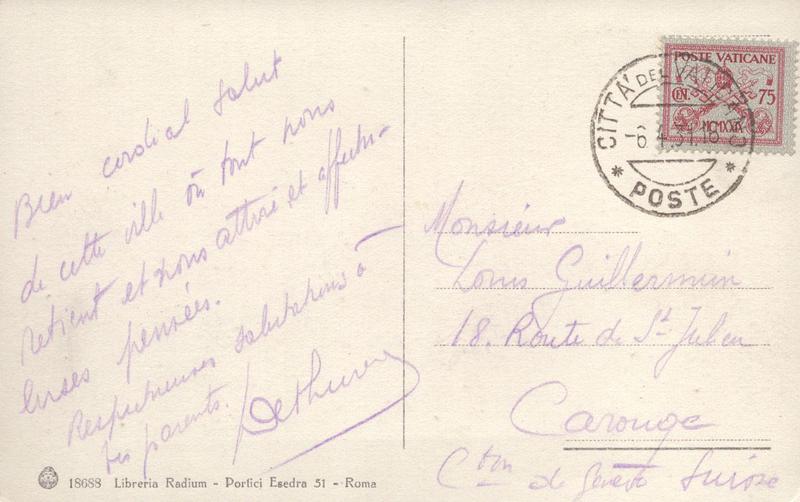 Bien cordial salut
de cette ville où tout nous
retient et nous attire et affectu-
euses pensées.
Respectueuses salutations à
tes parents.
POSTE VATICANE
CEN. 75
MCMXXIX
CITTÀ DEL VATICANO
-6.4.31.18
* POSTE *
Monsieur
Louis Guillermin
18. Route de St Julien
Carouge
Cton de Genève Suisse
18688 Libreria Radium - Portici Esedra 51 - Roma